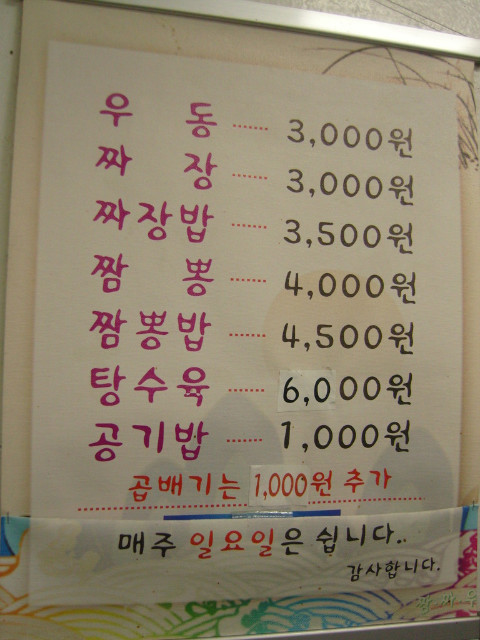 우 동 ...... 3,000원
짜 장 ...... 3,000원
짜장밥 ...... 3,500원
짬 뽕 ...... 4,000원
짬뽕밥 ...... 4,500원
탕수육 ...... 6,000원
공기밥 ...... 1,000원
곱배기는 1,000원 추가
매주 일요일은 쉽니다..
감사합니다.